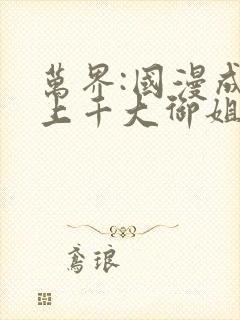 萬界:國漫成
上千大御姐
鳶琅